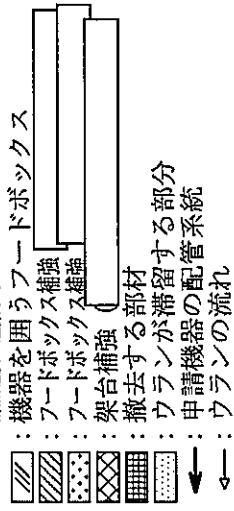 : 機器を囲うフードボックス
: フードボックス補強
: フードボックス補強
: 架台補強
: 撤去する部材
: ウランが滞留する部分
: 申請機器の配管系統
: ウランの流れ